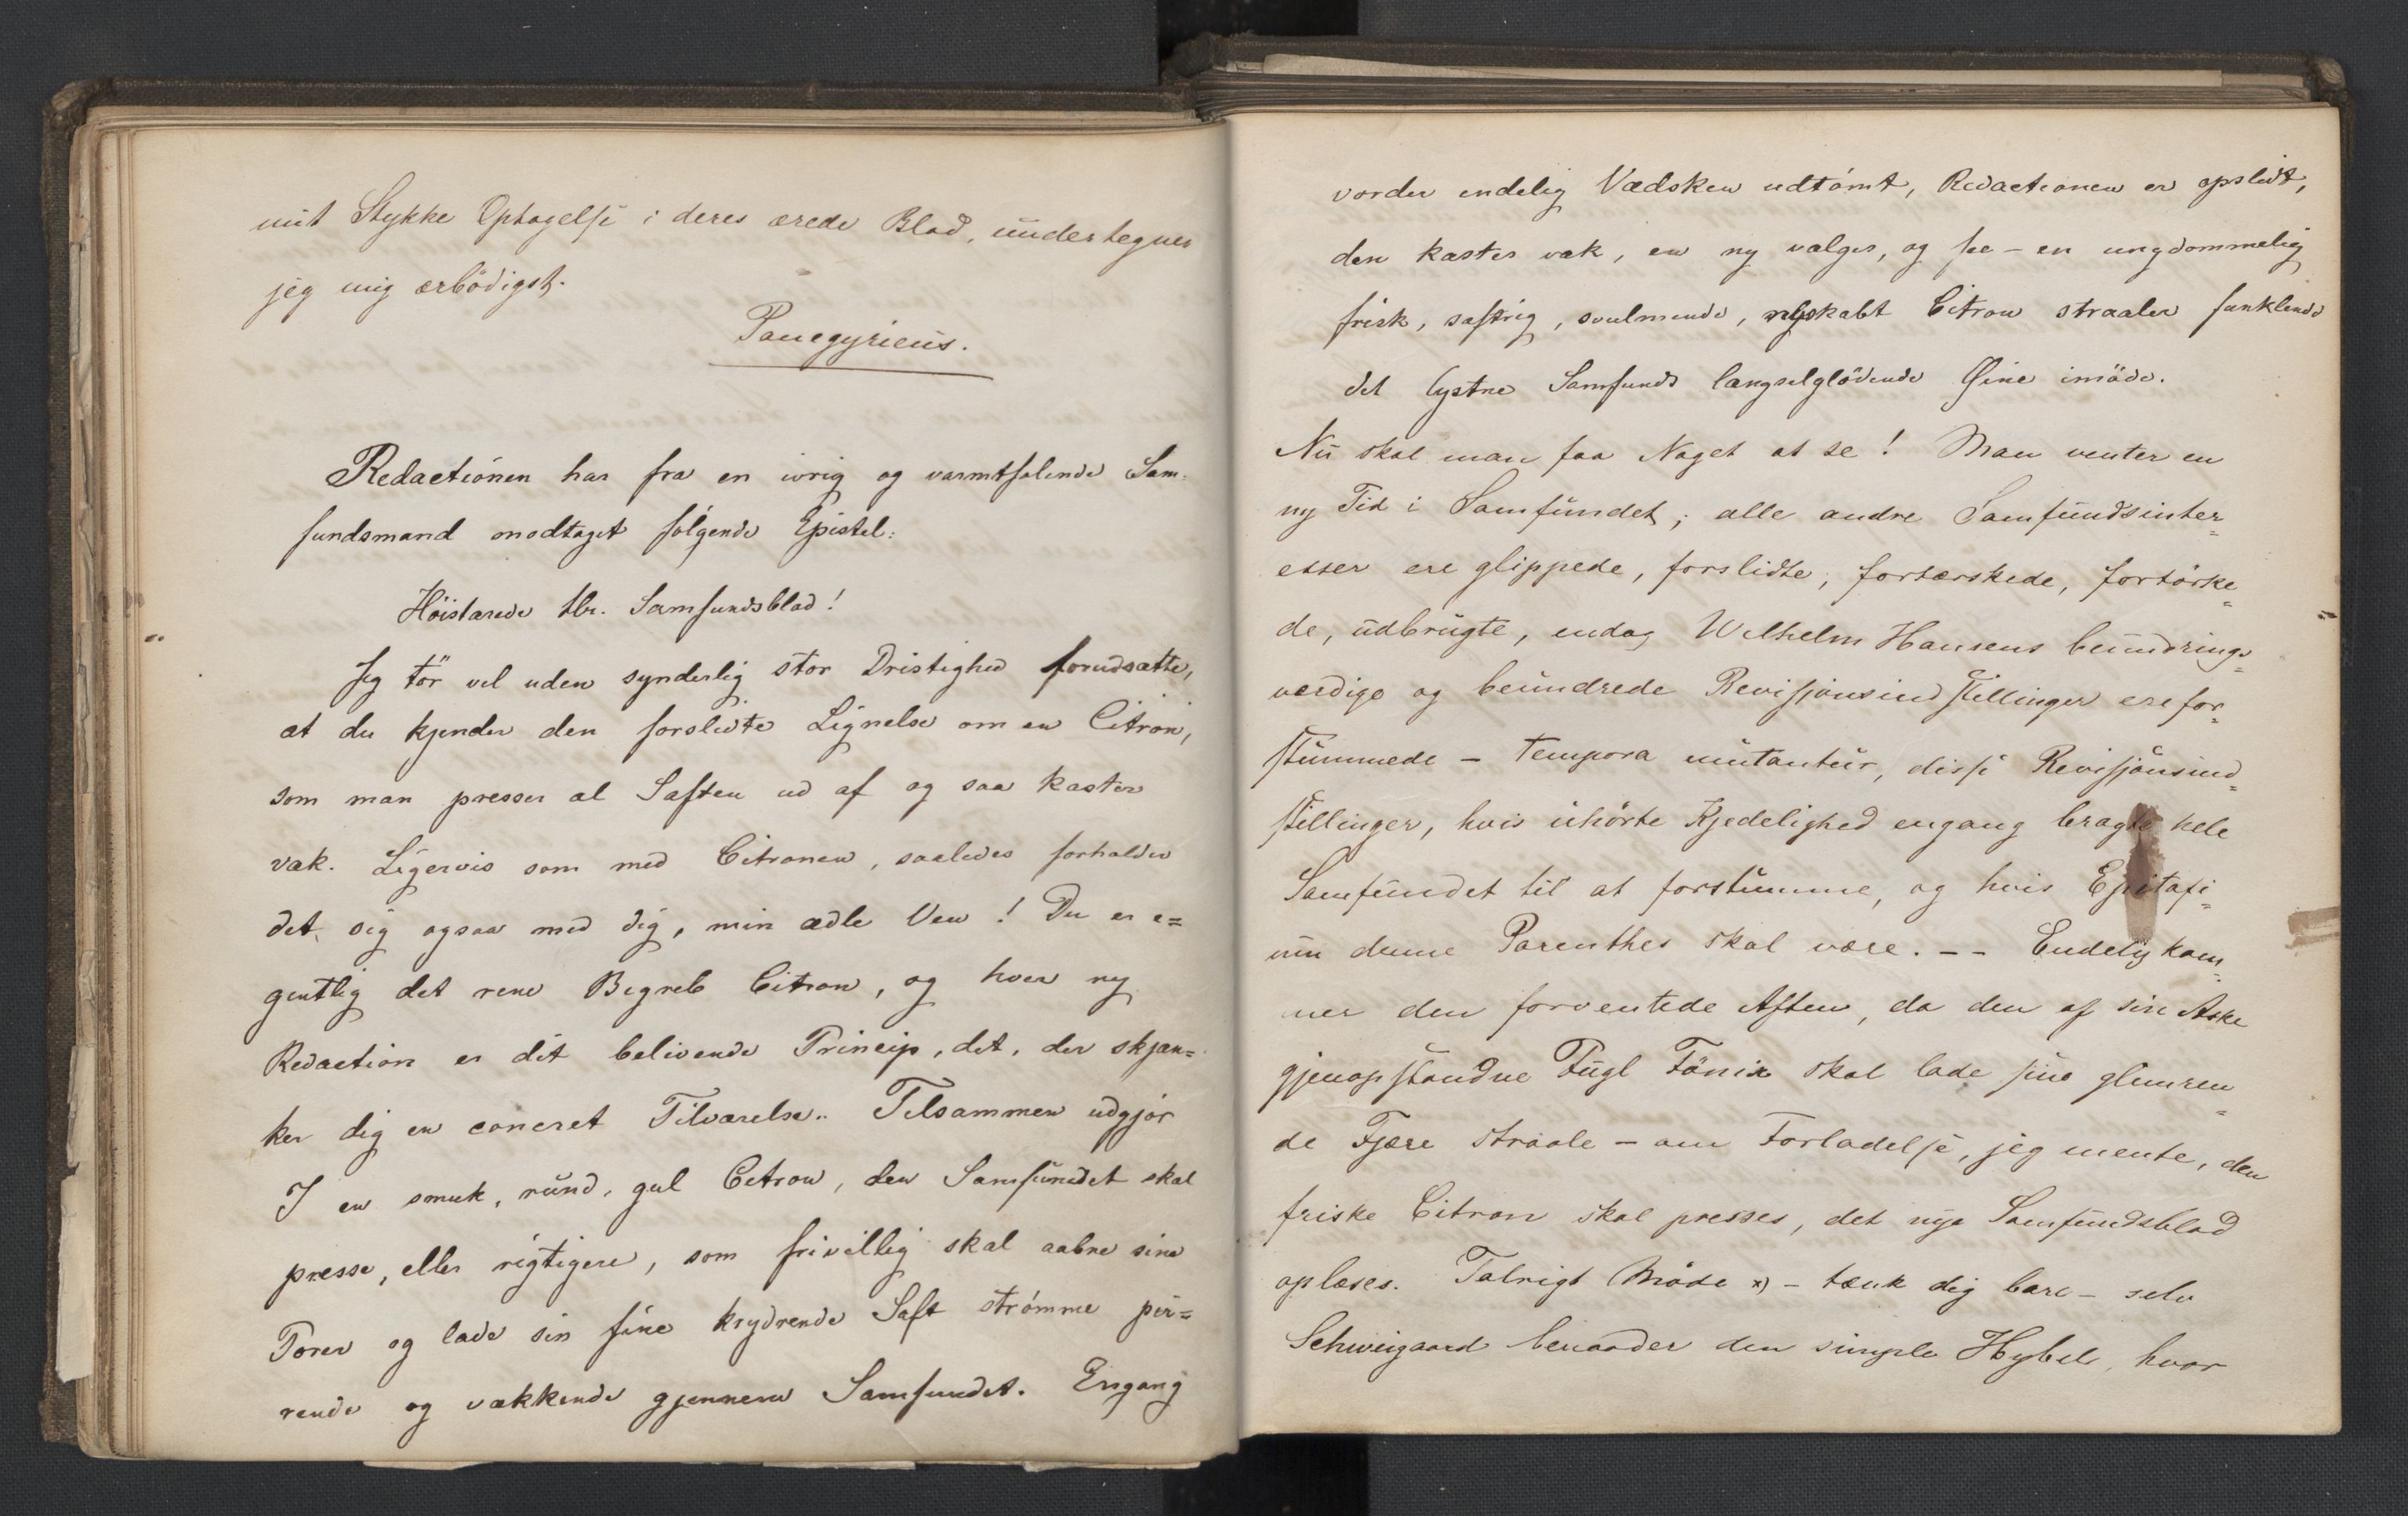 mit Stykke Optagelse i deres ærede Blad, undertegner
jeg mig ærbødigst.
Panegyricus.
Redactionen har fra en ivrig og varmtfølende Sam-
fundsmand modtaget følgende Epistel:
Höistærede Hr. Samfundsblad!
Jeg tör vel uden synderlig stor Dristighed forudsætte,
at du kjender den forslidte Lignelse om en Citron,
som man presser al Saften ud af og saa kaster
væk. Ligervis som med Citronen, saaledes forholder
det sig ogsaa med dig, min ædle Ven! Du er e=
gentlig det rene Begreb Citron, og hver ny
Redaction er dit belivende Princip, det, der skjæn=
ker dig en concret Tilværelse. Tilsammen udgjör
I en smuk, rund, gul Citron, den Samfundet skal
presse, eller rigtigere, som frivillig skal aabne sine
Porer og lade sin fine krydrende Saft strömme pir=
rende og vækkende gjennem Samfundet. Engang
vorder endelig Vædsken udtömt, Redactionen er opslidt,
den kastes væk, en ny vælges, og see – en ungdommelig
frisk, saftrig, svulmende, nyskabt Citron straaler funklende
det lystne Samfunds længselglödende Öine imöde.
Nu skal man faa Noget at se! Man venter en
ny Tid i Samfundet; alle andre Samfundsinter=
esser ere glippede, forslidte, fortærskede, fortörke=
de, udbrugte, endog Wilhelm Hansens beundrings=
værdige og beundrede Revisjonsindstillinger ere for=
stummede – tempora mutantur, disse Revisjonsind=
stillinger, hvis uhörte Kjedelighed engang bragte hele
Samfundet til at forstumme, og hvis Epitafi=
um denne Parenthes skal være. – – Endelig kom=
mer den forventede Aften, da den af sin Aske
gjenopstandne Fugl Fönix skal lade sine glimren=
de Fjære straale – om Forladelse, jeg mente, den
friske Citron skal presses, det nye Samfundsblad
oplæses. Talrigt Möde x) – tænk dig bare – selv
Schweigaard benaader den simple Hybel, hvor